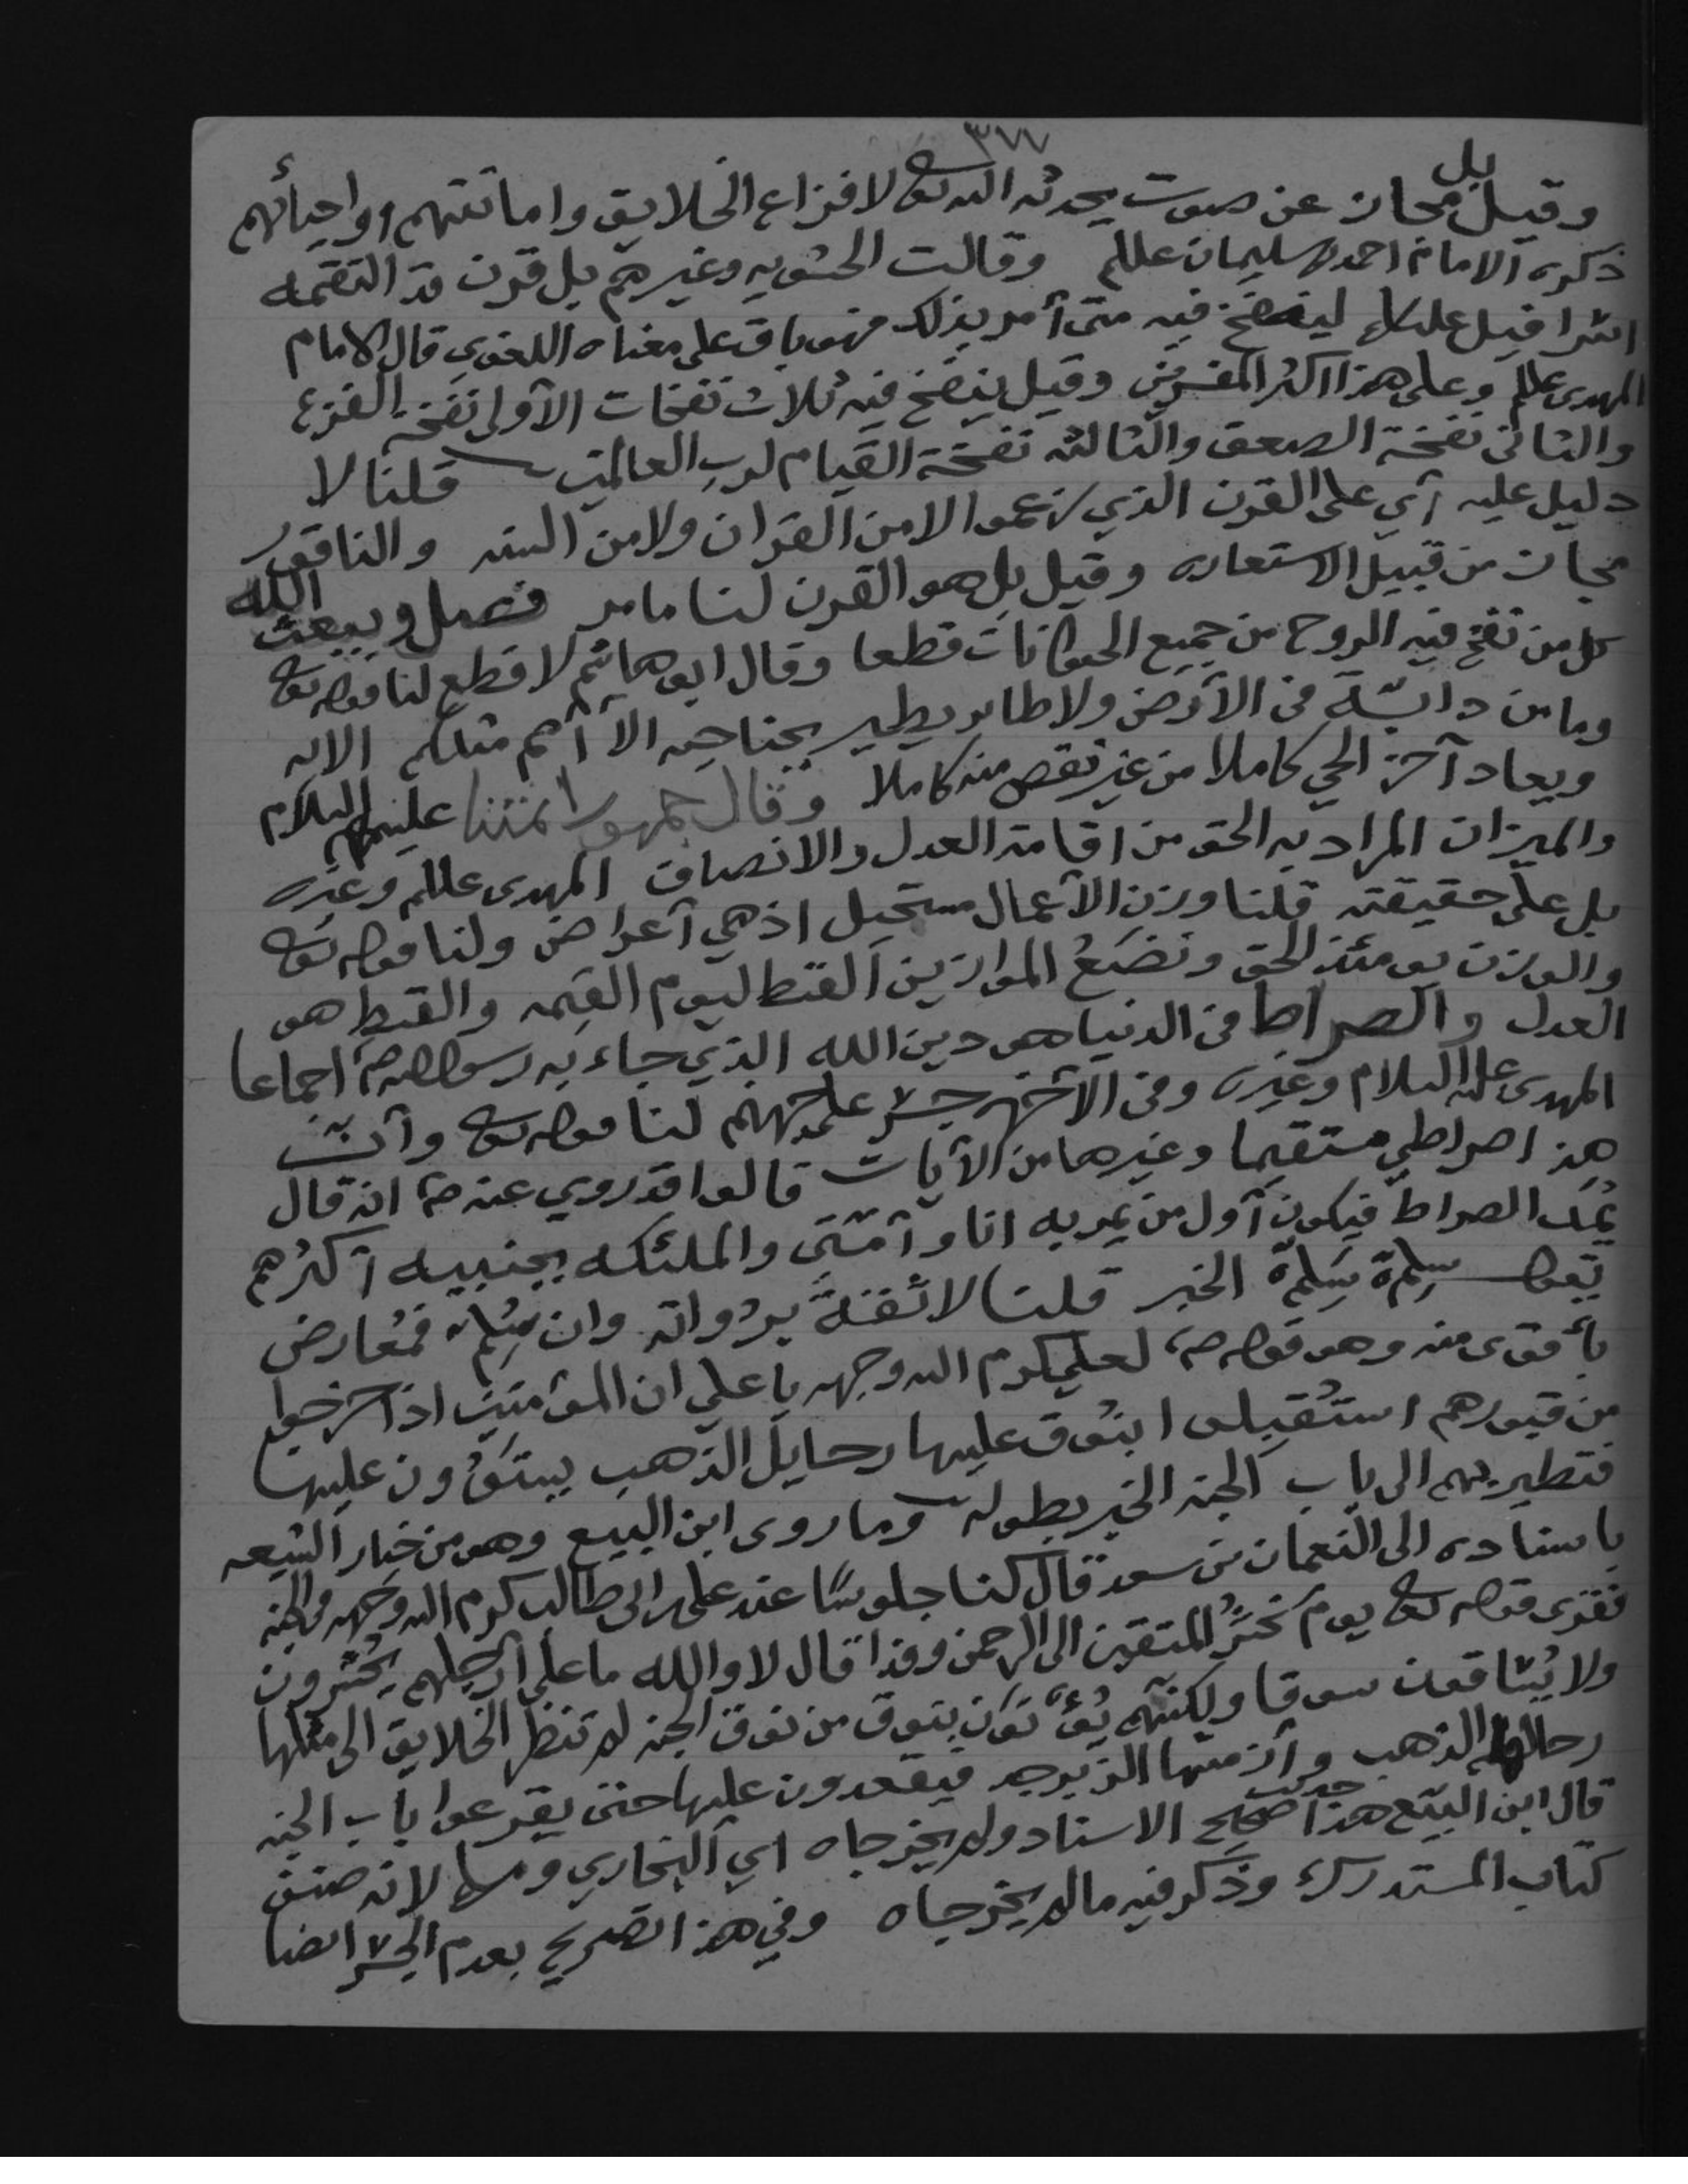 ٣٧٧
وقيل بل مجاز عن صوت يحدثه الله تعالى لافزاع الخلايق واماتتهم واحيائهم
ذكره الامام احمد بن سليمان عللم وقالت الحشويه وغيرهم بل قرن قد التقمه
اسرافيل علىلم لينفخ فيه متى أمر بذلك فهو باق على معناه اللغوي قال الامام
المهدى عللم وعلى هذا اكثر المفسرين وقيل ينفخ فيه ثلاث نفخات الأولى نفخة الفزع
والثانى نفخة الصعق والثالثه نفخة القيام لرب العالمين قلنا لا
دليل عليه أي على القرن الذي زعموا لا من القران ولا من السنه والناقور
مجاز من قبيل الاستعاره وقيل بل هو القرن لنا ما مر فصل ويبعث الله
كل من نفخ فيه الروح من جميع الحيوانات قطعا وقال ابو هاشم لا قطع لنا قوله تعالى
وما من دابّة في الأرض ولا طاير يطير بجناحيه الا أمم مثلكم الايه
ويعاد آخر الحي كاملا من غير نقص منه كاملا وقال جمهور ائمتنا عليهم السلام
والميزان المراد به الحق من اقامة العدل والانصاف المهدى عللم وغيره
بل على حقيقته قلنا وزن الأعمال مستحيل اذ هي أعراض ولنا قوله تعالى
والوزن يومئذ الحق ونضع الموازين القسط ليوم القيمه والقسط هو
العدل والصراط في الدنيا هو دين الله الذي جاء به رسول الله صم اجماعا
المهدى عليه السلام وغيره وفي الآخره جسر على جهنم لنا قوله تعالى وأنّ
هذا صراطي مستقيما وغيرها من الأيات قالوا قد روي عنه صم انه قال
يُمَدّ الصراط فيكون أول من يمر به انا وأمّتي والملئكه بجنبيه أكثرهم
يقول سَلِّمْ سَلِّمْ الخبر قلنا لا ثقة برواته وان سُلِّم فمُعارض
بأقوى منه وهو قوله صم لعلي كرم الله وجهه يا علي ان المؤمنين اذا خرجوا
من قبورهم استُقبلوا بنُوق عليها رحايل الذهب يستوُون عليها
فتطير بهم الى باب الجنه الخبر بطوله وما روى ابن البيع وهو من خيار الشيعه
باسناده الى النعمان بن سعد قال كنا جلوسًا عند على بن ابى طالب كرم الله وجهه في الجنه
فقرى قوله تعالى يوم نحشُر المتقين الى الرحمن وفدا قال لا والله ما على أرجلهم يُحشرون
ولا يُساقون سوقا ولكنّهم يُؤتَون بنوق من نوق الجنه لم تنظر الخلايق الى مثلها
رحالها الذهب وأزمتها الزبرجد فيقعدون عليها حتى يقرعوا باب الجنه
قال ابن البيّع هذا حديث صحيح الاسناد ولم يخرجاه اي البخاري ومسلم لانه صنف
كتاب المستدرك وذكر فيه مالم يخرجاه وفي هذا تصريح بعدم الجسر ايضا